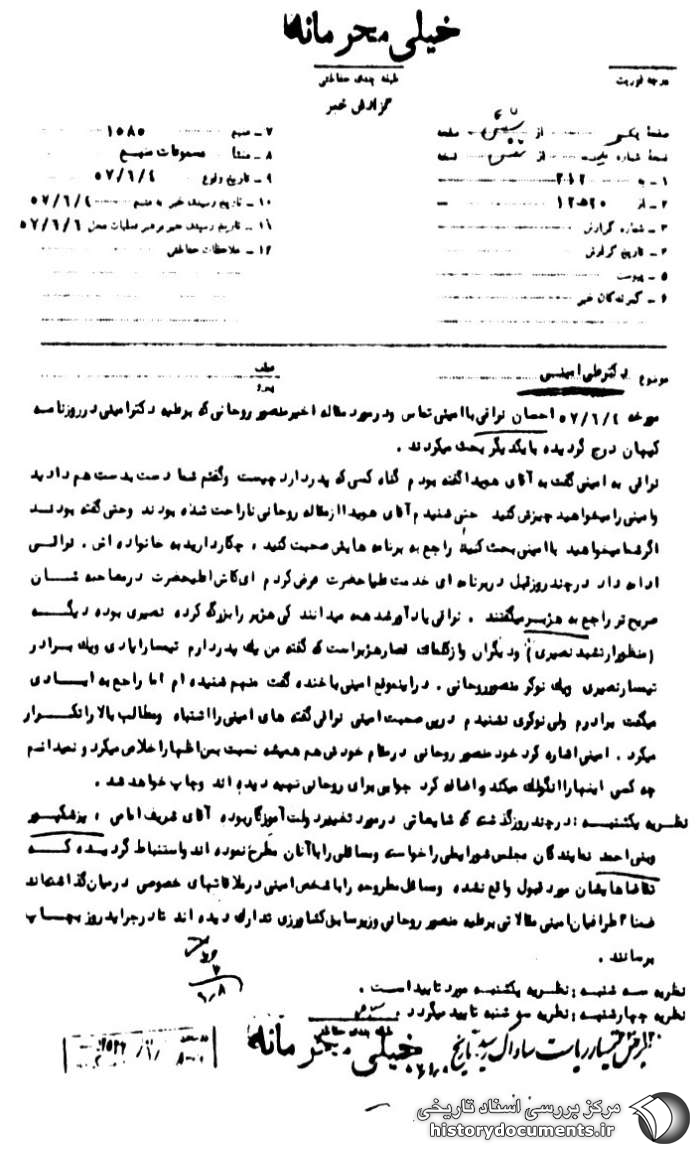 خیلی محرمانه
طبقه بندی حفاظتی
درجه فوریت
گزارش خبر
صفحه یکم از صفحه
نسخه شماره از نسخه
۱ ـ به ۳۱۲
۲ ـ از ۱۲ ه‍ ۲۰
۳ ـ شماره گزارش
۴ ـ تاریخ گزارش
۵ ـ پیوست
۶ ـ گیرندگان خبر
۷ ـ منبع ۱۰۸۵
۸ ـ منشأ مسموعات منبع
۹ ـ تاریخ وقوع ۵۷/۶/۴
۱۰ ـ تاریخ رسیدن خبر به منبع ۵۷/۶/۴
۱۱ ـ تاریخ رسیدن خبر به رهبر عملیات محل ۵۷/۶/۶
۱۲ ـ ملاحظات حفاظتی
موضوع دکتر علی امینی
مورخه ۵۷/۶/٤ احسان نراقی با امینی تماس و در مورد مقاله اخیر منصور روحانی که بر علیه دکتر امینی در روزنامه
کیهان درج گردیده با یکدیگر بحث میکردند .
نراقی به امینی گفت به آقای هویدا گفته بودم گناه کسی که پدر دارد چیست و گفتم شما دست بدست هم دادید
و امینی را میخواهید چیزش کنید حتی شنیدم آقای هویدا از مقاله روحانی ناراحت شده بودند و حتی گفته بودند
اگر شما میخواهید با امینی بحث کنید راجع به برنامه هایش صحبت کنید ، چکار دارید به خانواده اش . نراقی
ادامه داد در چند روز قبل در برنامه ای خدمت علیاحضرت عرض کردم ای کاش اعلیحضرت در مصاحبه شان
صریح تر راجع به هژبر میگفتند . نراقی یادآور شد همه میدانند کی هژبر را بزرگ کرده نصیری بوده دیگه
(منظور ارتشبد نصیری) و دیگران و از کلمات قصار هژبر است که گفته من یک پدر دارم تیمسار ایادی و یک برادر
تیمسار نصیری و یک نوکر منصور روحانی . در اینموقع امینی با خنده گفت منهم شنیده ام اما راجع به ایادی
میگفت برادرم ولی نوکری نشنیدم در پی صحبت امینی نراقی گفته های امینی را اشتباه و مطالب بالا را تکرار
میکرد . امینی اشاره کرد خود منصور روحانی در مقام خودش هم همیشه نسبت بمن اظهار اخلاص میکرد و نمیدانم
چه کسی اینها را آنگولک میکند و اضافه کرد جوابی برای روحانی تهیه دیده اند و چاپ خواهد شد .
نظریه یکشنبه : در چند روز گذشته که شایعاتی در مورد تغییر دولت آموزگار بوده آقای شریف امامی ، پزشکپور
و بنی احمد نمایندگان مجلس شورایملی را خواسته و مسائلی را با آنان مطرح نموده اند و استنباط گردیده که
تقاضاهایشان مورد قبول واقع نشده و مسائل مطروحه را با شخص امینی در ملاقاتهای خصوصی در میان گذاشته‌اند
ضمنا" اطرافیان امینی مقالاتی بر علیه منصور روحانی وزیر سابق کشاورزی تدارک دیده اند تا در جراید روز بچاپ
برسانند .
نظریه سه شنبه : نظریه یکشنبه مورد تایید است .
نظریه چهارشنبه : نظریه سه شنبه تایید میگردد .
طبقه بندی حفاظتی
خیلی محرمانه
مرکز بررسی اسناد تاریخی
historydocuments.ir